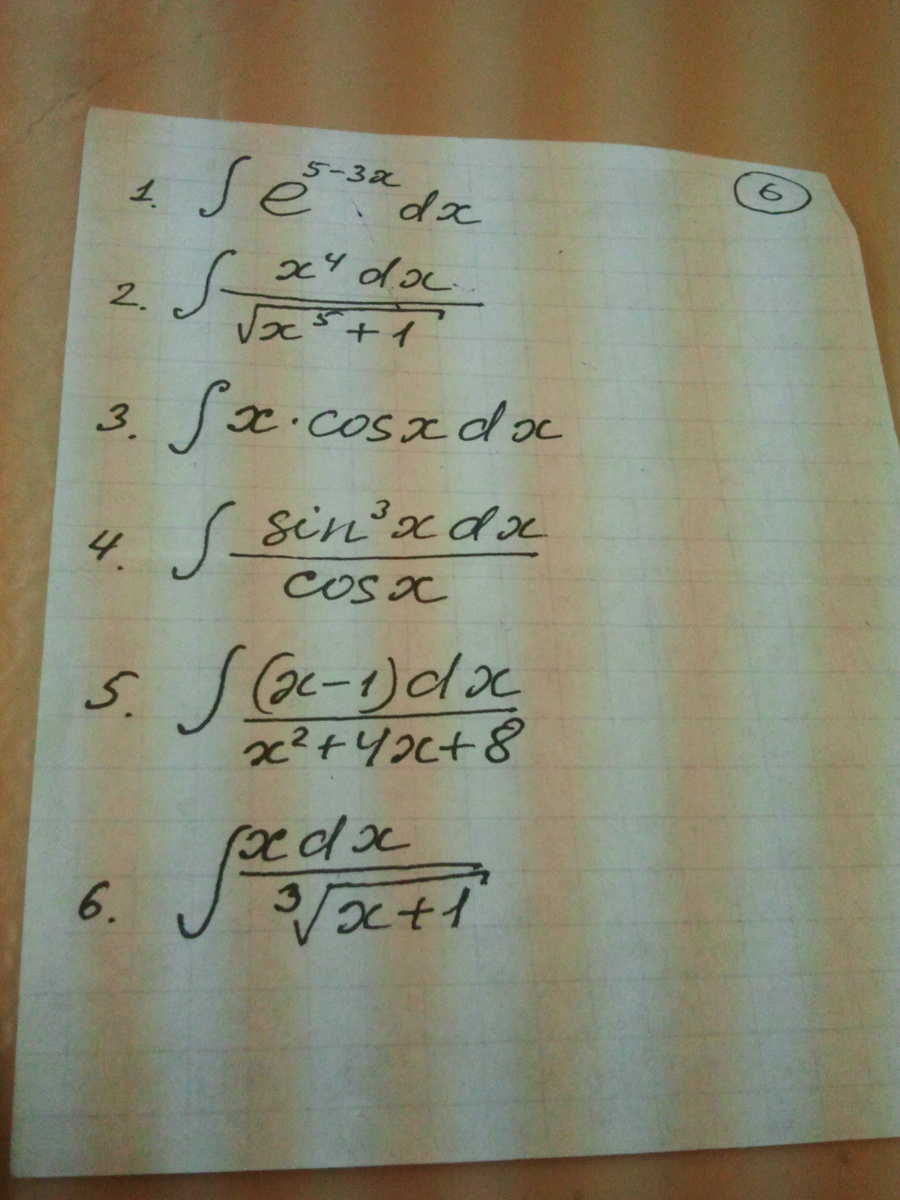 6
1. ∫ e^(5-3x) dx
2. ∫ x⁴ dx / √(x⁵ + 1)
3. ∫ x · cos x dx
4. ∫ sin³x dx / cos x
5. ∫ (x-1) dx / (x² + 4x + 8)
6. ∫ x dx / ³√(x+1)